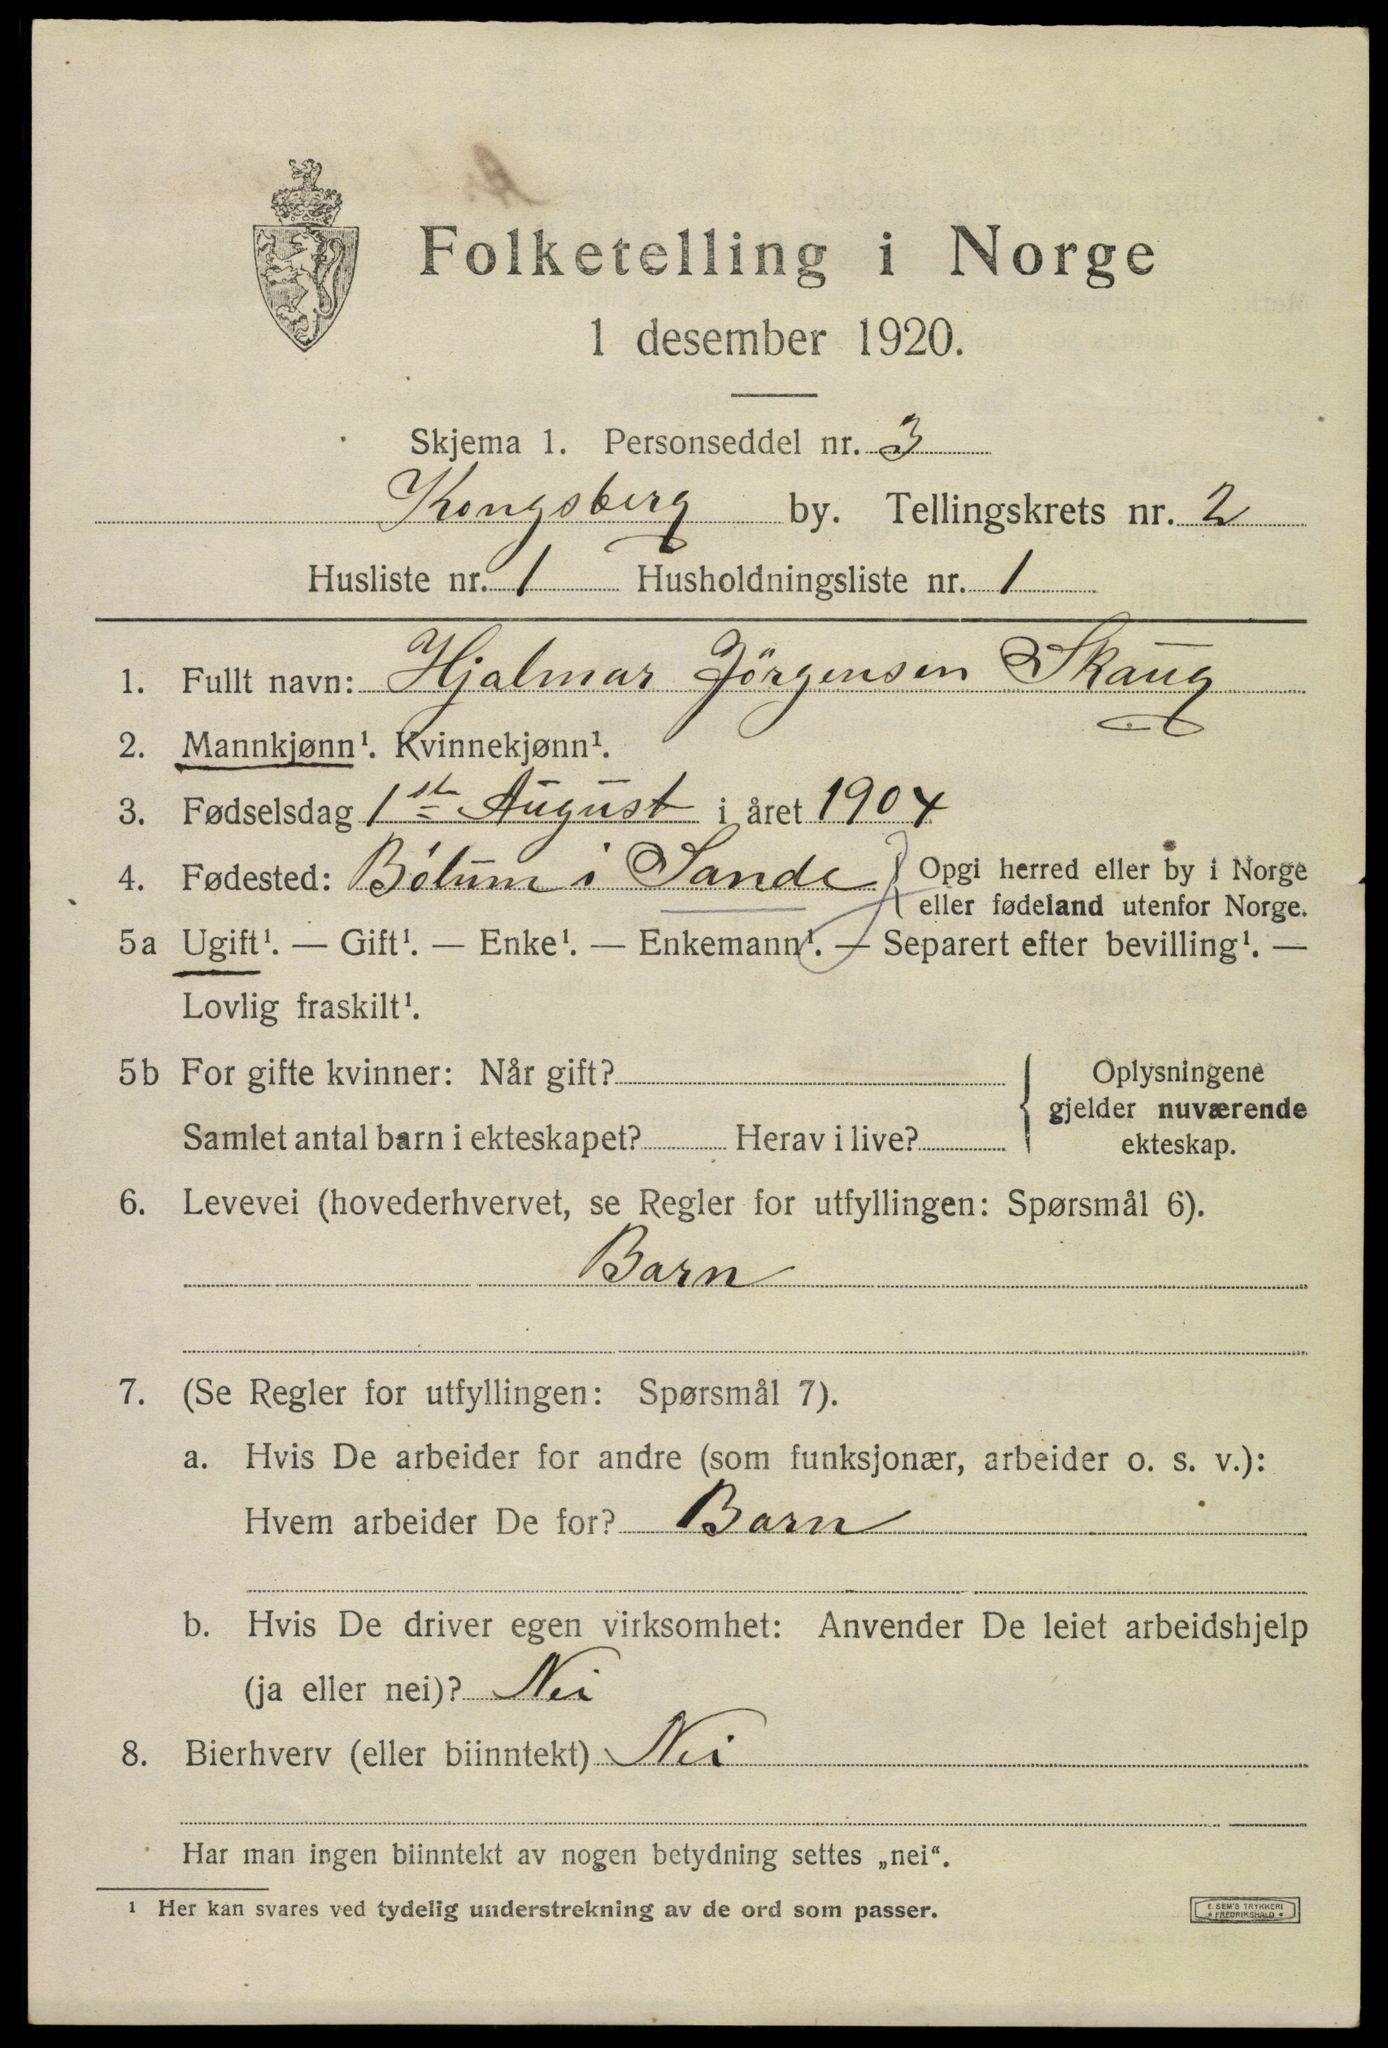 Folketelling i Norge
1 desember 1920.
Skjema 1. Personseddel nr. 3
Kongsberg by. Tellingskrets nr. 2
Husliste nr. 1 Husholdningsliste nr. 1
1. Fullt navn: Hjalmar Jörgensen Skaug
2. Mannkjønn¹. Kvinnekjønn¹.
3. Fødselsdag 1st August i året 1904
4. Fødested: Bölum i Sande { Opgi herred eller by i Norge
eller fødeland utenfor Norge.
5a Ugift¹. — Gift¹. — Enke¹. — Enkemann¹. — Separert efter bevilling¹. —
Lovlig fraskilt¹.
5b For gifte kvinner: Når gift? { Oplysningene
gjelder nuværende
Samlet antal barn i ekteskapet? Herav i live? ekteskap.
6. Levevei (hovederhvervet, se Regler for utfyllingen: Spørsmål 6).
Barn
7. (Se Regler for utfyllingen: Spørsmål 7).
a. Hvis De arbeider for andre (som funksjonær, arbeider o. s. v.):
Hvem arbeider De for? Barn
b. Hvis De driver egen virksomhet: Anvender De leiet arbeidshjelp
(ja eller nei)? Nei
8. Bierhverv (eller biinntekt) Nei
Har man ingen biinntekt av nogen betydning settes „nei“.
¹ Her kan svares ved tydelig understrekning av de ord som passer.
E. SEM'S TRYKKERI
* FREDRIKSHALD *